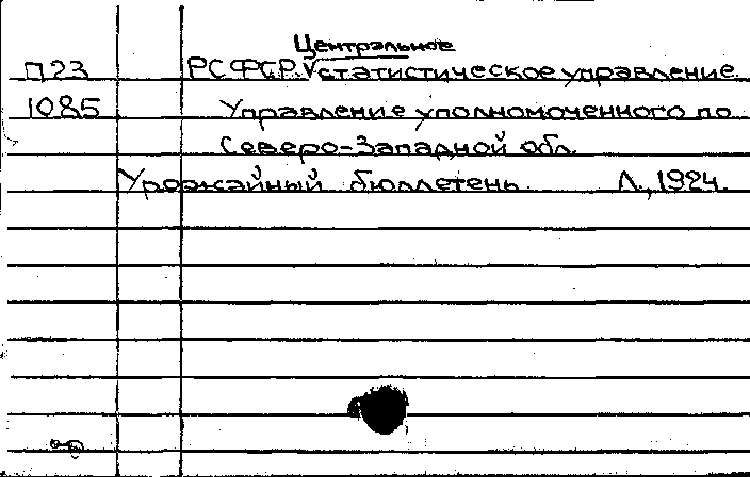 Центральное
П23 РСФСР. V статистическое управление.
1085 Управление уполномоченного по
Северо-Западной обл.
Урожайный бюллетень. Л., 1924.